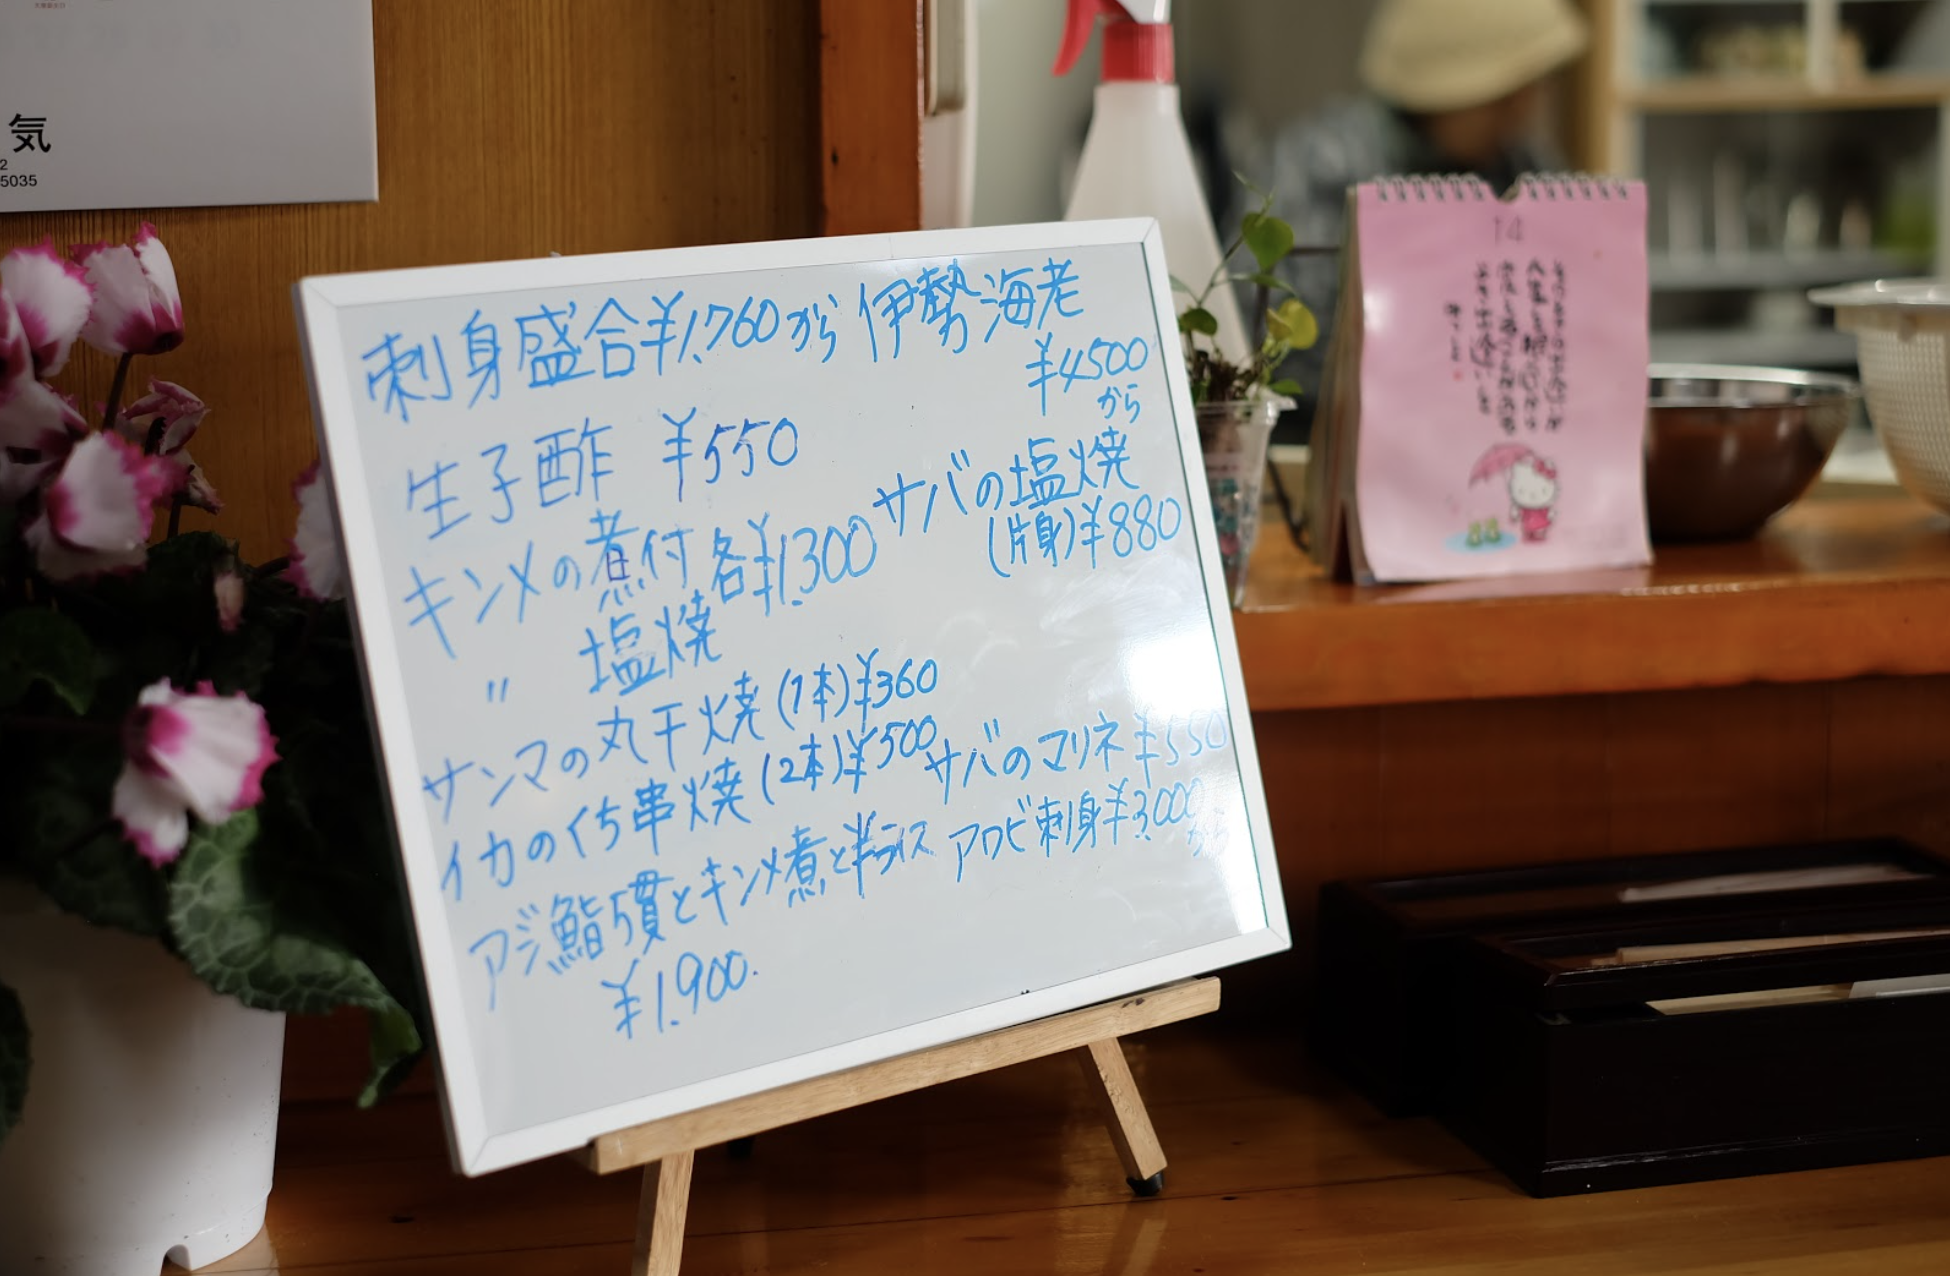 気
2
5035
刺身盛合¥1,760から 伊勢海老
¥4500
から
生子酢 ¥550
サバの塩焼
(片身)¥880
キンメの煮付 各¥1,300
〃 塩焼
サンマの丸干焼(1本)¥360
イカのくち串焼(2本)¥500
サバのマリネ ¥550
アジ鮨5貫とキンメ煮と半ライス
¥1,900.
アワビ刺身¥3,000
から
14